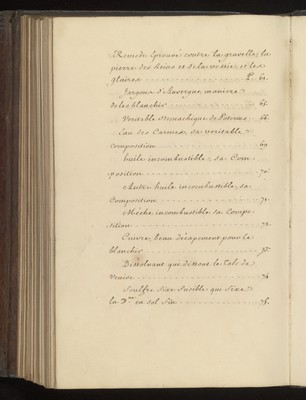 Remede Eprouvé contre la gravelle, la
pierre des Reins et de la vessie et les
glaires . . . . . . . . . . P. 61.
Jargons d'Auvergne maniere
de les blanchir . . . . . . . . . . 65.
Veritable Stomachique de . . 66.
Eau des Carmes sa veritable
Composition . . . . . . . . . . 69.
huile incombustible, sa Com
position . . . . . . . . . . 70.
Autre huile incombustible, sa
Composition . . . . . . . . . . 71.
Mèche incombustible sa Compo-
sition . . . . . . . . . .
Cuivre, beau pour le
blanchir . . . . . . . . . .
Dissolvant qui dissout le Talc de
Venise . . . . . . . . . . 74.
Souffre fixe fusible qui fixe
la en sel fix . . . . . . . . . . 75.